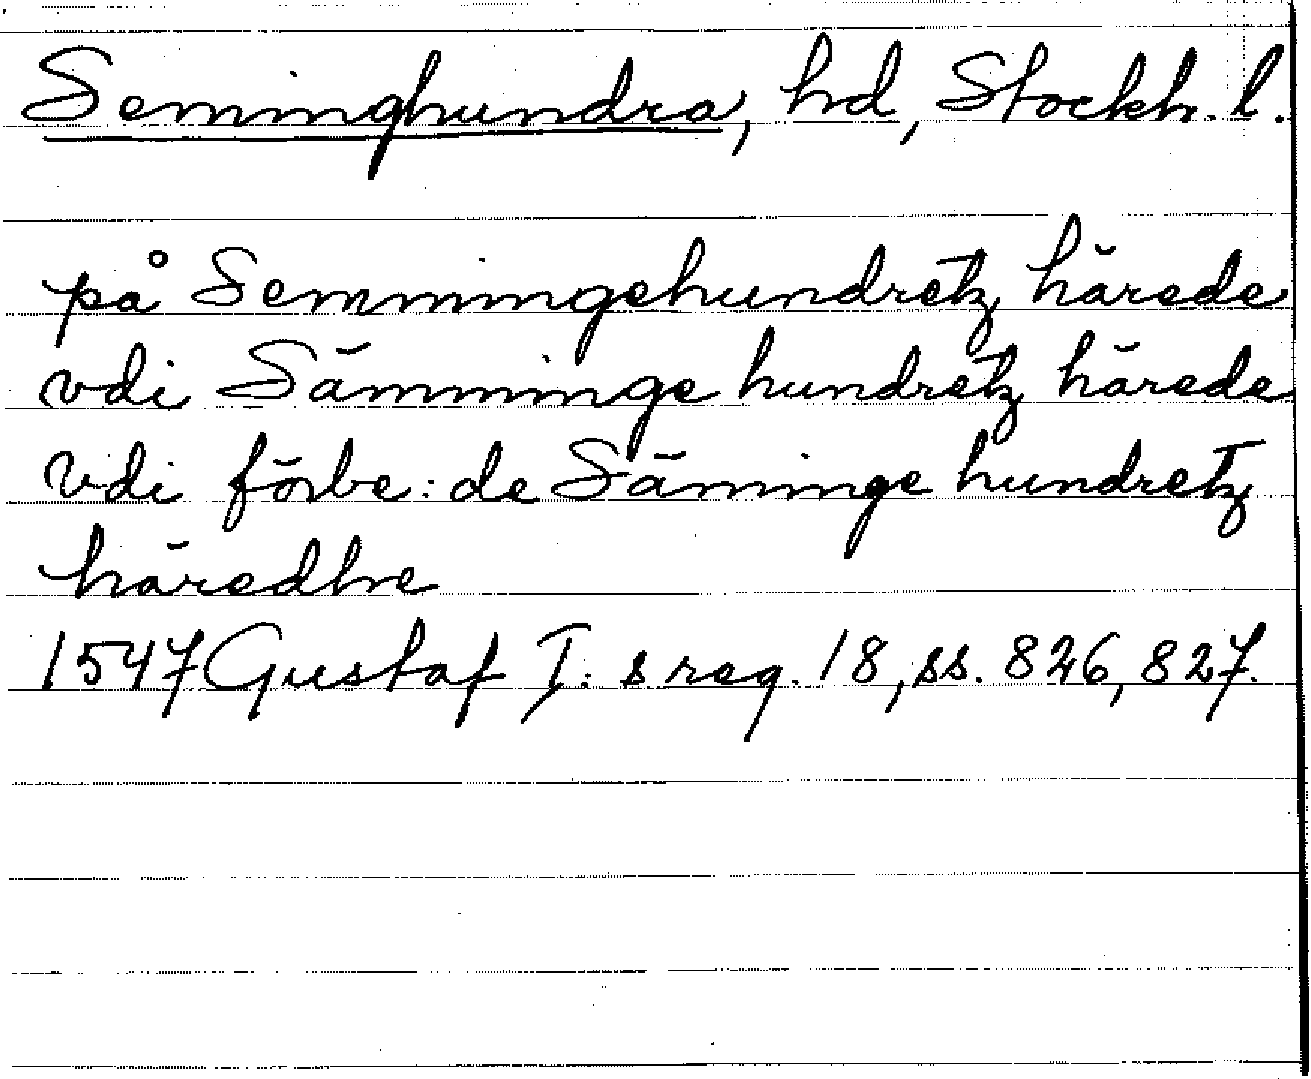 Seminghundra, hd, Stockh. l.
på Semmingehundretz härede
vdi Sämminge hundretz härede
vdi förbe: de Säminge hundretz
häredhe
1547 Gustaf I: s reg. 18, ss. 826, 827.